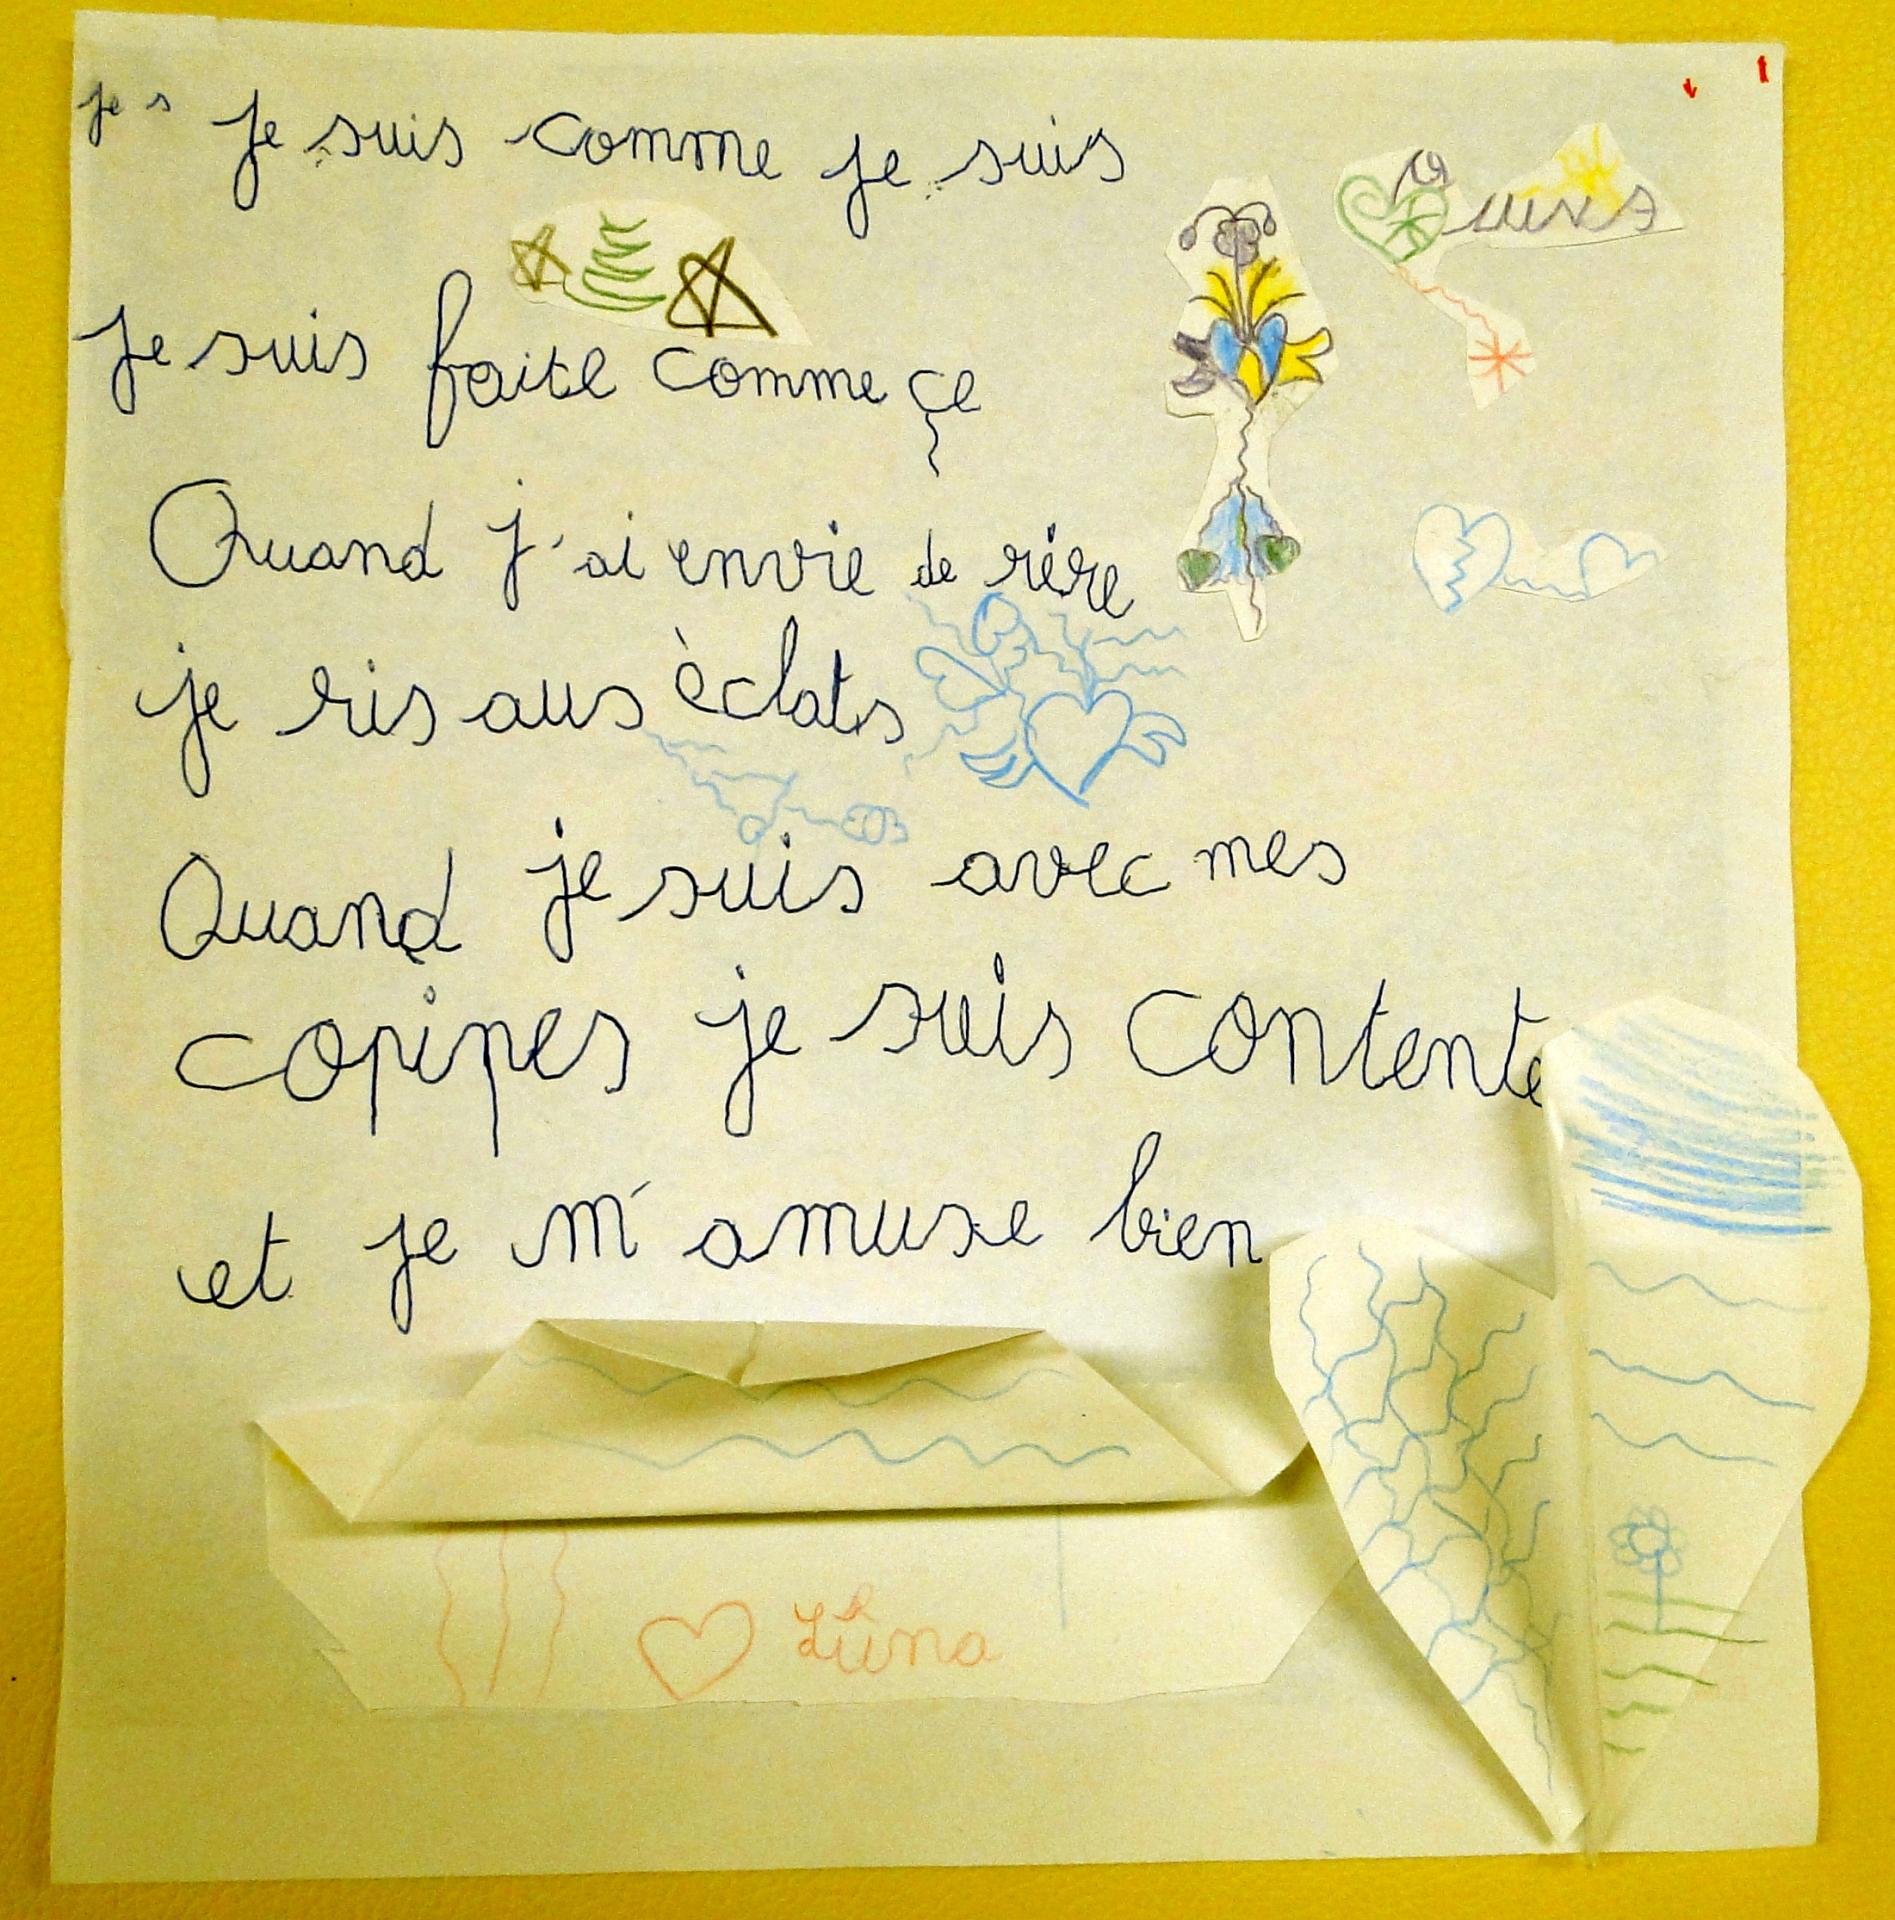 je s
Je suis comme je suis
Je suis faite comme çe
Quand j'ai envie de rire
je ris aus èclats
Quand je suis avec mes
copines je suis contente
et je m'amuse bien
Luna